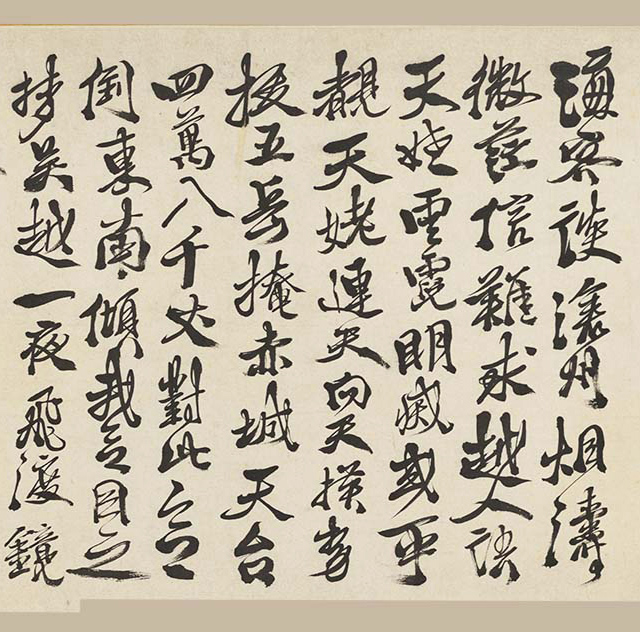 海客談瀛州烟濤
微茫信難求越人語
天姥雲霓明滅或可
覩天姥連天向天橫勢
拔五岳掩赤城天台
四萬八千丈對此欲
倒東南傾我欲因之
夢吳越一夜飛渡鏡